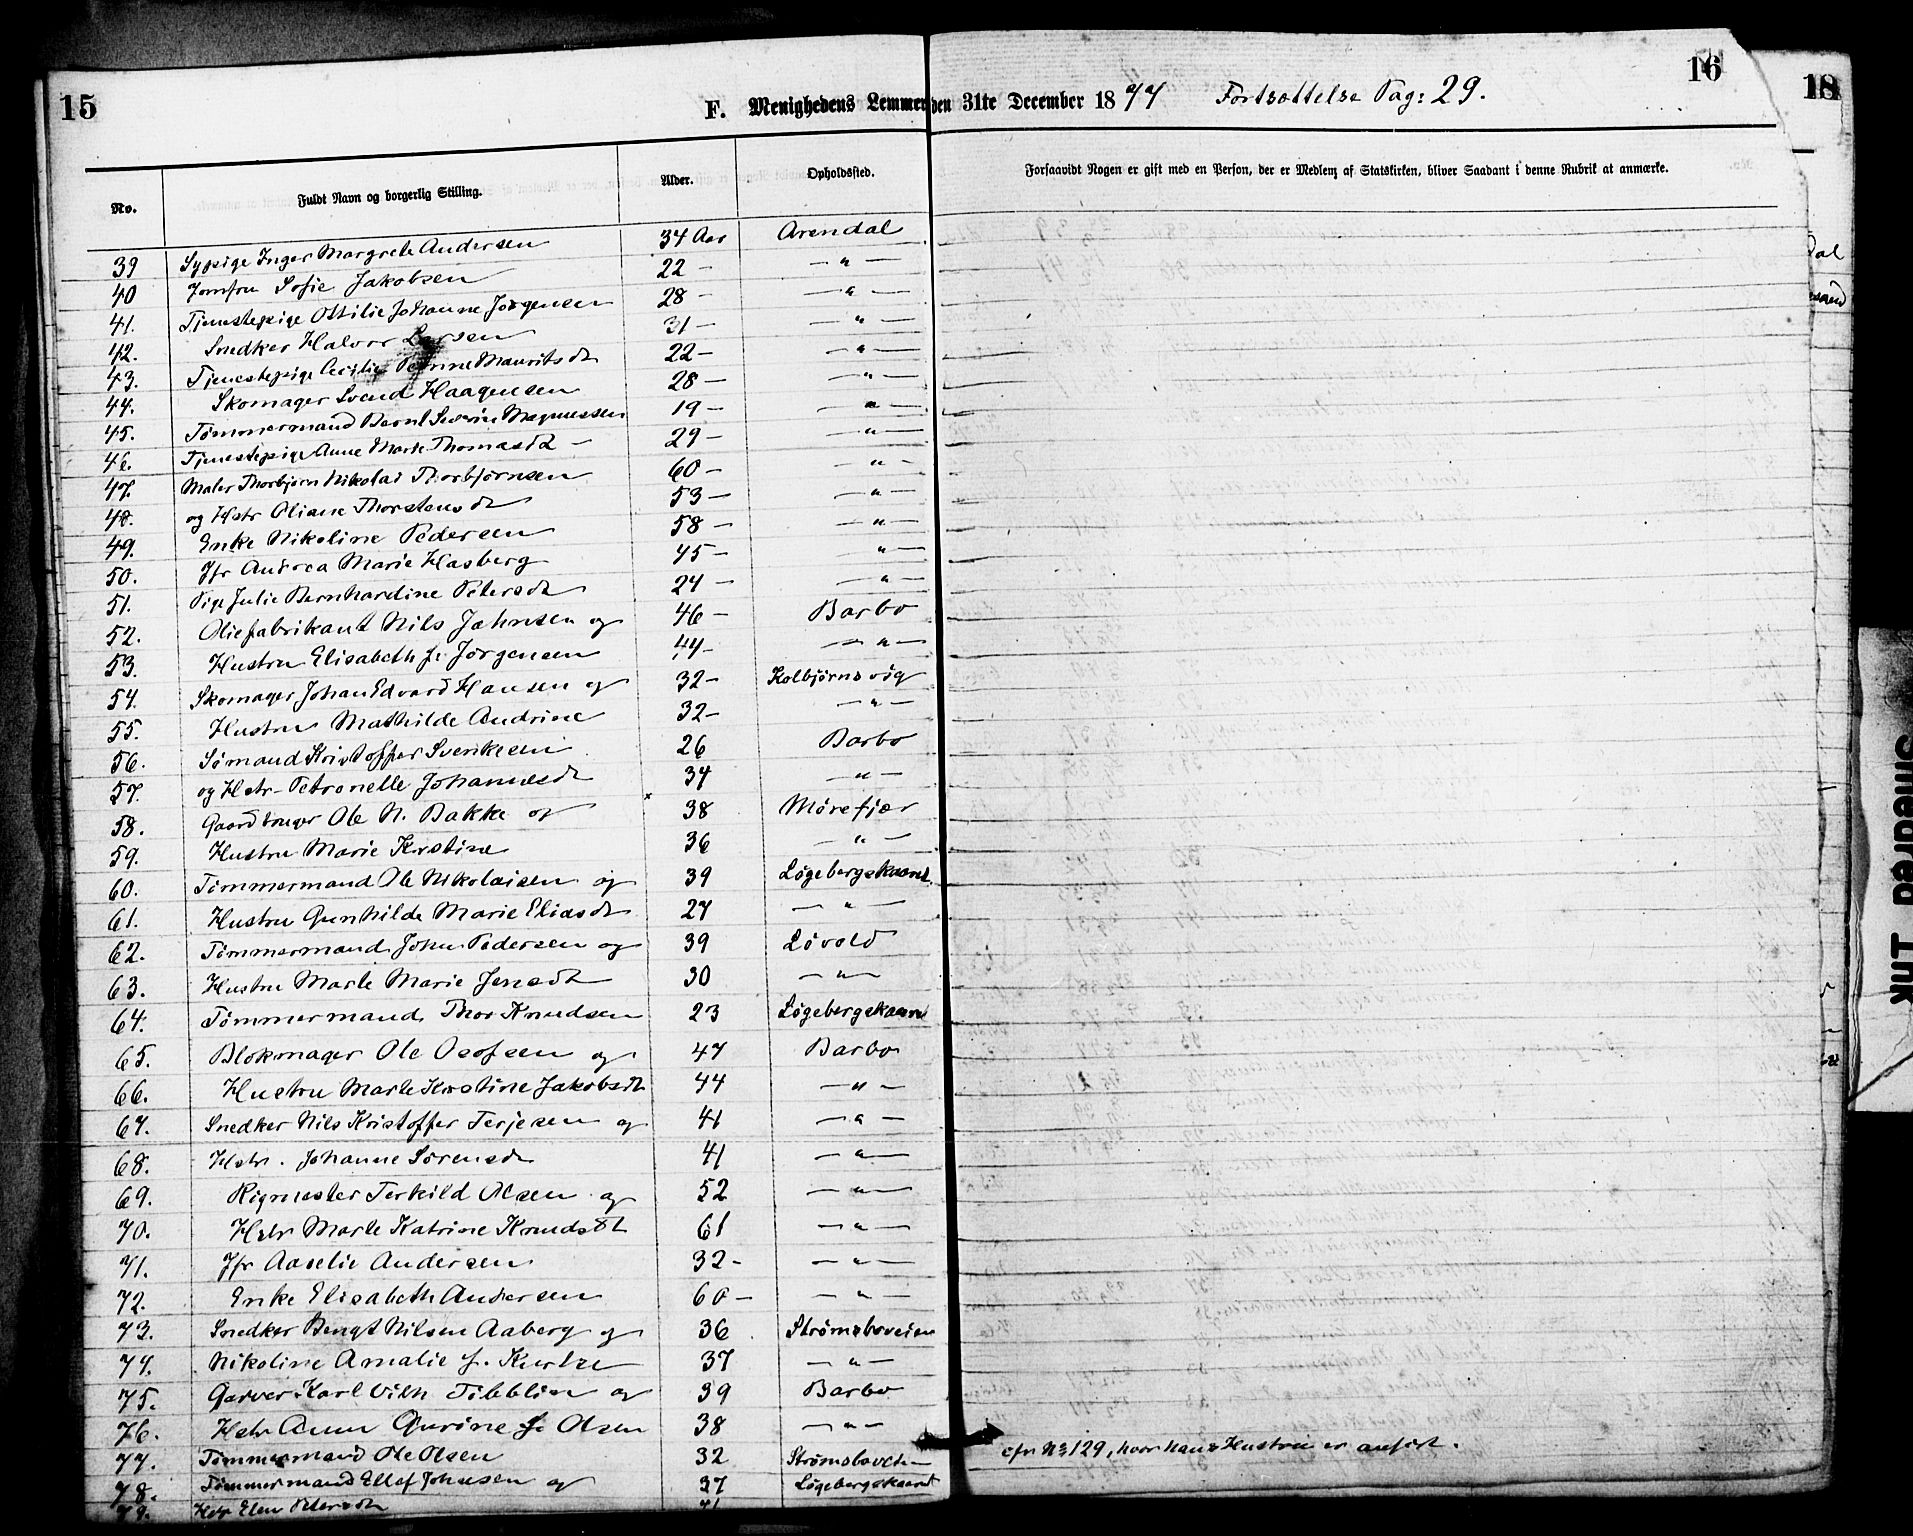 15
16
18
F. Menighedens Lemmer den 31te December 1877 Fortsættelse Pag: 29.
No.
Fuldt Navn og borgerlig Stilling.
Alder.
Opholdssted.
Forsaavidt Nogen er gift med en Person, der er Medlem af Statskirken, bliver Saadant i denne Rubrik at anmærke.
39 Sypige Inger Margrete Andersen 34 Aar Arendal
40 Jomfru Sofie Jakobsen 22 — " —
41. Tjenestepige Ottilie Johanne Jørgensen 28 — " —
42. Snedker Halvor Larsen 31 — " —
43. Tjenestepige Cecilie Petrine Mauritsdt 22 — " —
44. Skomager Svend Haagensen 28 — " —
45. Tømmermand Bernt Severin Magnussen 19 — " —
46. Tjenestepige Anne Marte Thomasdt — 29 — " —
47. Maler Thorbjørn Nikolai Thorbjørnsen 60 — " —
48. og Hstr Oliane Thorstensdt 53 — " —
49. Enke Nikoline Pedersen 58 — " —
50. Jfr Andrea Marie Hasberg 45 — " —
51. Pige Julie Bernhardine Petersdt 24 — " —
52. Oliefabrikant Nils Jahnsen og 46 — Barbo
53. Hustru Elisabeth f. Jørgensen 44 — " —
54. Skomager Johan Edvard Hansen og 32 — Kolbjørnsvig
55. Hustru Mathilde Andrine 32 — " —
56. Sømand Kristoffer Svenksen 26 Barbo
57. og Hstr Petronelle Johannesdt 34 — " —
58. Gaardbruger Ole N. Bakke og x 38 Mørefjær
59. Hustru Marie Kirstine 36 — " —
60. Tømmermand Ole Nikolaisen og 39 Løgebergskaaret
61. Hustru Gunhilde Marie Eliasdt 27 — " —
62. Tømmermand John Pedersen og 39 Løvold
63. Hustru Marte Marie Jensdt 30 — " —
64. Tømmermand Thor Knudsen 23 Løgebergskaaret
65. Blokmager Ole Olofsen og 47 Barbo
66. Hustru Marte Kirstine Jakobsdt 44 — " —
67. Snedker Nils Kristoffer Terjesen og 41 — " —
68. Hstr. Johanne Sørensdt 41 — " —
69. Rigmester Terkild Olsen og 52 — " —
70. Hstr Marte Katrine Knudsdt 61 — " —
71. Jfr Aaselie Andersen 32 — " —
72. Enke Elisabeth Andersen 60 — " —
73. Snedker Bengt Nilsen Aaberg og 36 Strømsboveien
74. Nikoline Amalie f. 37 — " —
75. Garver Karl Vilh Tibblin og 39 Barbo
76. Hstr Anne Gurine f. Olsen 38 — " —
77. Tømmermand Ole Olsen 32 Strømsboveien cfr No 129, hvor hans Hustru er anført.
78. Tømmermand Ellef Johnsen og 37 Løgebergskaaret
79. Hstr Elen Petersdt 41
Smeared Ink